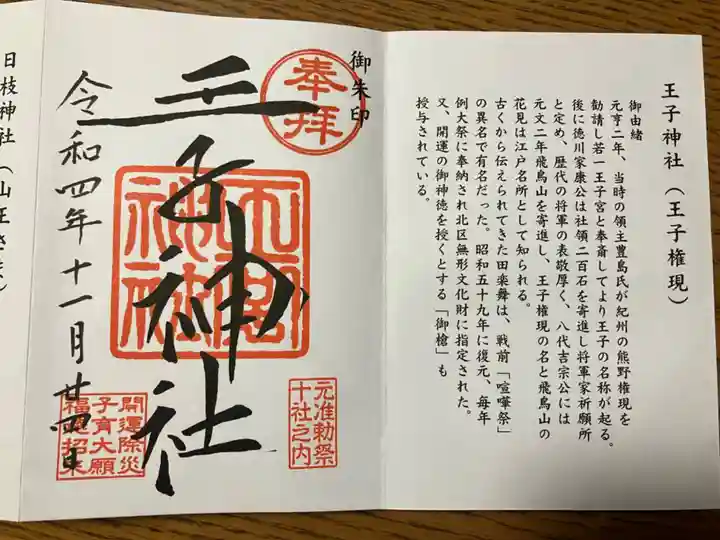 王子神社（王子権現）
御由緒
元亨二年、当時の領主豊島氏が紀州の熊野権現を
勧請し若一王子宮と奉斎してより王子の名称が起る。
後に徳川家康公は社領二百石を寄進し将軍家祈願所
と定め、歴代の将軍の表敬厚く、八代吉宗公には
元文二年飛鳥山を寄進し、王子権現の名と飛鳥山の
花見は江戸名所として知られる。
古くから伝えられてきた田楽舞は、戦前「喧嘩祭」
の異名で有名だった。昭和五十九年に復元、毎年
例大祭に奉納され北区無形文化財に指定された。
又、開運の御神徳を授くとする「御槍」も
授与されている。
御朱印
奉拝
王子神社
王子神社
元准勅祭
十社之内
令和四年十一月廿四日
開運除災
子育大願
福徳招来
日枝神社（山王さま）